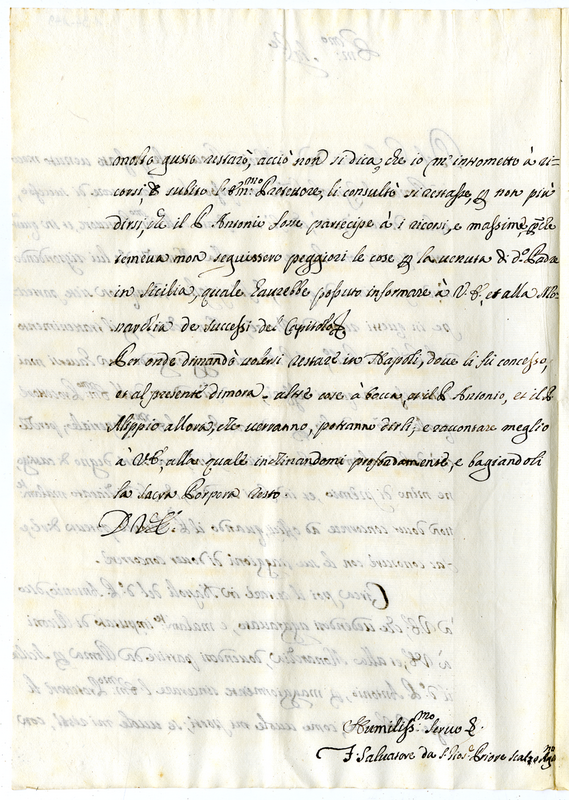 molto gusto restarò, acciò non si dica, che io m' intrometto à ri-
corsi, subito l'Em.mo Protettore, li consultò si restasse, non più
dirsi, che il P. Antonio fosse partecipe à i ricorsi, e massime, perche
temeva non seguissero peggiori le cose la venuta di d.o Padre
in Sicilia, quale haurebbe possuto informare à V. E. et alla Mo-
narchia de successi del Capitolo
Per onde dimandò volersi restare in Napoli, dove li fù concesso,
et al presente dimora. altre cose à bocca, et il P. Antonio, et il P.
Alippio allora, che verranno, potranno dirli, e raccontare meglio
à V. E. alla quale inclinandomi profondamente, e bagiandoli
la Sacra Porpora resto
D. V. E.
Humiliss.mo Servo
F. Salvatore da Priore Scalzo